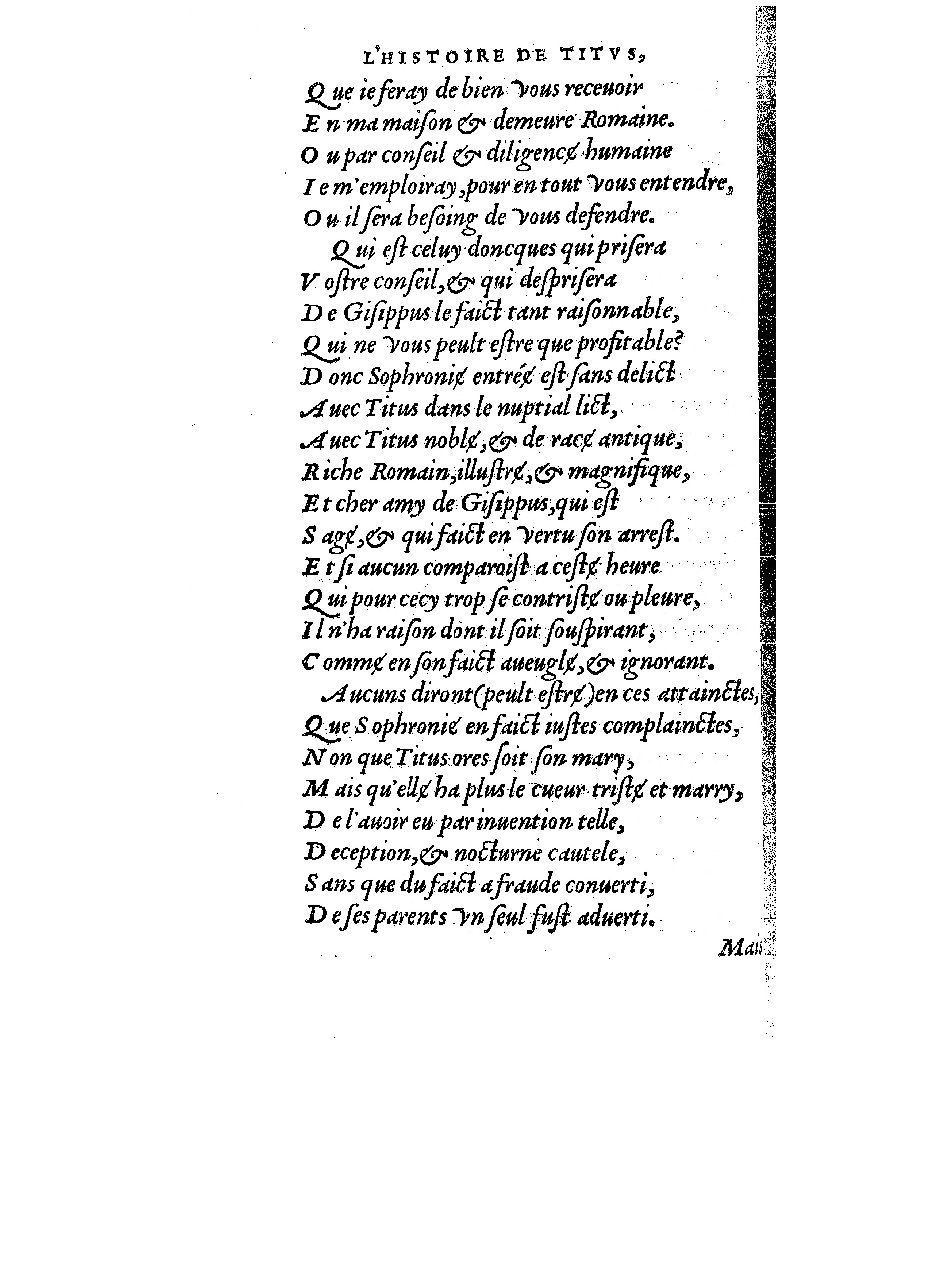 L'HISTOIRE DE TITVS,
Que ie feray de bien vous receuoir
En ma maiſon & demeure Romaine.
Ou par conſeil & diligencɇ humaine
Ie m'emploiray, pour en tout vous entendre,
Ou il ſera beſoing de vous defendre.
Qui eſt celuy doncques qui priſera
Voſtre conſeil, & qui deſpriſera
De Giſippus le faict tant raiſonnable,
Qui ne vous peult eſtre que profitable?
Donc Sophroniɇ entréɇ eſt ſans delict
Auec Titus dans le nuptial lict,
Auec Titus noblɇ, & de racɇ antique,
Riche Romain, illuſtrɇ, & magnifique,
Et cher amy de Giſippus, qui eſt
Sagɇ, & qui faict en vertu ſon arreſt.
Et ſi aucun comparoiſt a ceſtɇ heure
Qui pour cecy trop ſe contriſtɇ ou pleure,
Il n'ha raiſon dont il ſoit ſouſpirant,
Commɇ en ſon faict aueuglɇ, & ignorant.
Aucuns diront (peult eſtrɇ) en ces attainctes,
Que Sophroniɇ en faict iuſtes complainctes,
Non que Titus ores ſoit ſon mary,
Mais qu'ellɇ ha plus le cueur triſtɇ et marry,
De l'auoir eu par inuention telle,
Deception, & nocturne cautele,
Sans que du faict a fraude conuerti,
De ſes parents vn ſeul fuſt aduerti.
Mais